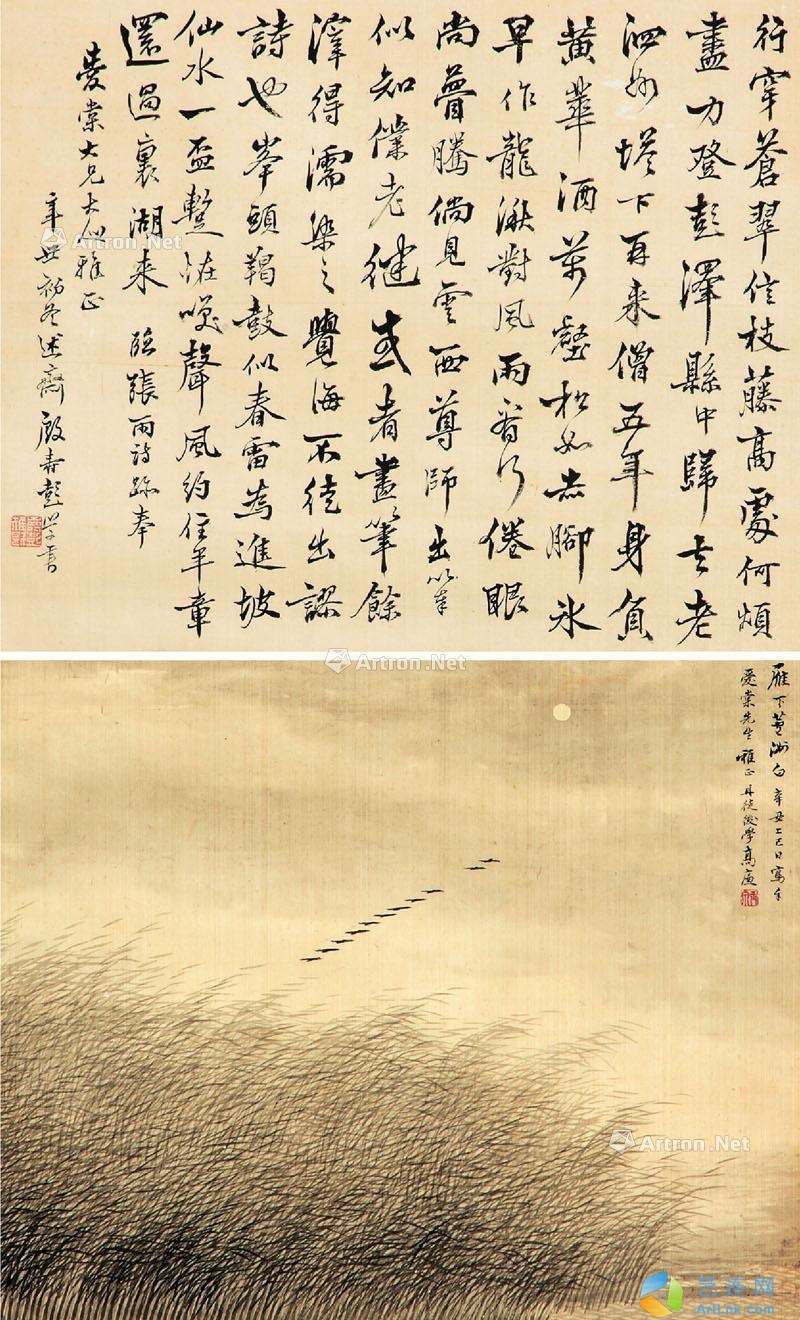 行穿蒼翠信枝藤高處何煩
盡力登彭澤縣中歸去老
泗州塔下再来僧五年身負
黃華酒萬壑松如赤腳冰
早作龍湫對風雨看行倦眼
尚瞢騰倘見雲西尊師出以
似知僕老健或者畫筆餘
滓得濡染之覺海不徒出謬
詩也峯頭羯鼓似春雷為進坡
仙水一盃蹔咲聲風約住年章
還過裏湖来 臨張雨詩跡奉
愛棠大兄大人雅正
辛丑初冬述齋殷壽彭學書
Artron.Net
Artron.Net
雁下蘆洲白 辛丑上巳日寫奉
愛棠先生雅正 丹徒後學高
Artron.Net
艺连网
ArtLnk.Com